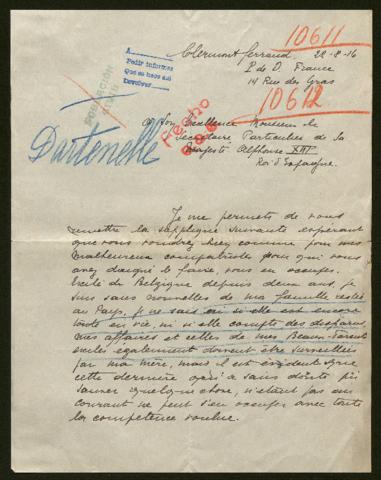 10611
Clermont Ferrand 22-8-16
P. de D. France
14 Rue des Gras
10612
A
Pedir informes
Que se haga así
Devolver
POBLACIÓN
CIVIL
Fecho
Dartenelle
A Son Excellence Monsieur le
Secrétaire Particulier de Sa
Majesté Alphonse XIII
Roi d'Espagne.
Je me permets de vous
remettre la supplique suivante espérant
que vous voudrez bien, comme pour mes
malheureux compatriotes pour qui vous
avez daigné le faire, vous en occuper.
Exilé de Belgique depuis deux ans, je
suis sans nouvelles de ma famille restée
au Pays, je ne sais où si elle est encore
toute en vie, ni si elle compte des disparus,
mes affaires et celles de mes Beaux-Parents
exilés également doivent être surveillées
par ma mère, mais il est évident que
cette dernière qui a sans doute pu
sauver quelque chose, n'étant pas au
courant ne peut s'en occuper avec toute
la compétence voulue.